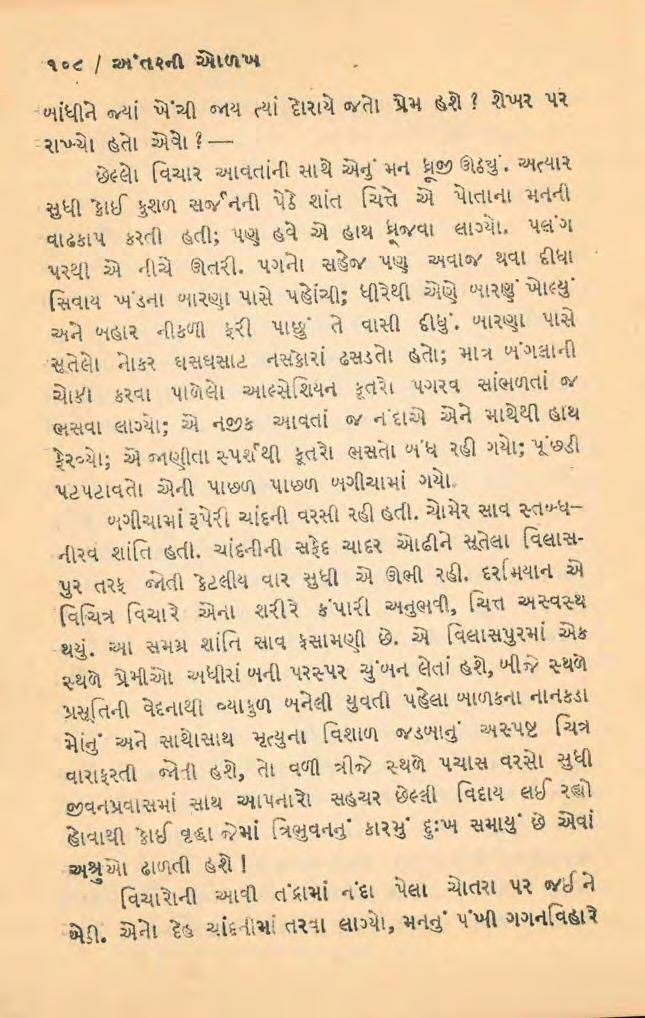 ૧૦૮ / અંતરની ઓળખ
બાંધીને જ્યાં ખેંચી જાય ત્યાં દોરાયે જતો પ્રેમ હશે ? શેખર પર
રાખ્યો હતો એવો ? —
છેલ્લો વિચાર આવતાંની સાથે એનું મન ધ્રૂજી ઊઠ્યું. અત્યાર
સુધી કોઈ કુશળ સર્જનની પેઠે શાંત ચિત્તે એ પોતાના મનની
વાઢકાપ કરતી હતી; પણ હવે એ હાથ ધ્રૂજવા લાગ્યો. પલંગ
પરથી એ નીચે ઊતરી. પગનો સહેજ પણ અવાજ થવા દીધા
સિવાય ખંડના બારણા પાસે પહોંચી; ધીરેથી એણે બારણું ખોલ્યું
અને બહાર નીકળી ફરી પાછું તે વાસી દીધું. બારણા પાસે
સૂતેલો નોકર ઘસઘસાટ નસકોરાં ઢસડતો હતો; માત્ર બંગલાની
ચોકી કરવા પાળેલો આલ્સેશિયન કૂતરો પગરવ સાંભળતાં જ
ભસવા લાગ્યો; એ નજીક આવતાં જ નંદાએ એને માથેથી હાથ
ફેરવ્યો; એ જાણીતા સ્પર્શથી કૂતરો ભસતો બંધ રહી ગયો; પૂંછડી
પટપટાવતો એની પાછળ પાછળ બગીચામાં ગયો.
બગીચામાં રૂપેરી ચાંદની વરસી રહી હતી. ચોમેર સાવ સ્તબ્ધ–
નીરવ શાંતિ હતી. ચાંદનીની સફેદ ચાદર ઓઢીને સૂતેલા વિલાસ-
પુર તરફ જોતી કેટલીય વાર સુધી એ ઊભી રહી. દરમિયાન એ
વિચિત્ર વિચારે એના શરીરે કંપારી અનુભવી, ચિત્ત અસ્વસ્થ
થયું. આ સમગ્ર શાંતિ સાવ ફસામણી છે. એ વિલાસપુરમાં એક
સ્થળે પ્રેમીઓ અધીરાં બની પરસ્પર ચુંબન લેતાં હશે, બીજે સ્થળે
પ્રસૂતિની વેદનાથી વ્યાકુળ બનેલી યુવતી પહેલા બાળકના નાનકડા
મોંનું અને સાથોસાથ મૃત્યુના વિશાળ જડબાનું અસ્પષ્ટ ચિત્ર
વારાફરતી જોતી હશે, તો વળી ત્રીજે સ્થળે પચાસ વરસો સુધી
જીવનપ્રવાસમાં સાથ આપનારો સહચર છેલ્લી વિદાય લઈ રહ્યો
હોવાથી કોઈ વૃદ્ધા જેમાં ત્રિભુવનનું કારમું દુઃખ સમાયું છે એવાં
અશ્રુઓ ઢાળતી હશે !
વિચારોની આવી તંદ્રામાં નંદા પેલા ચોતરા પર જઈને
બેઠી. એનો દેહ ચાંદનીમાં તરવા લાગ્યો, મનનું પંખી ગગનવિહારે